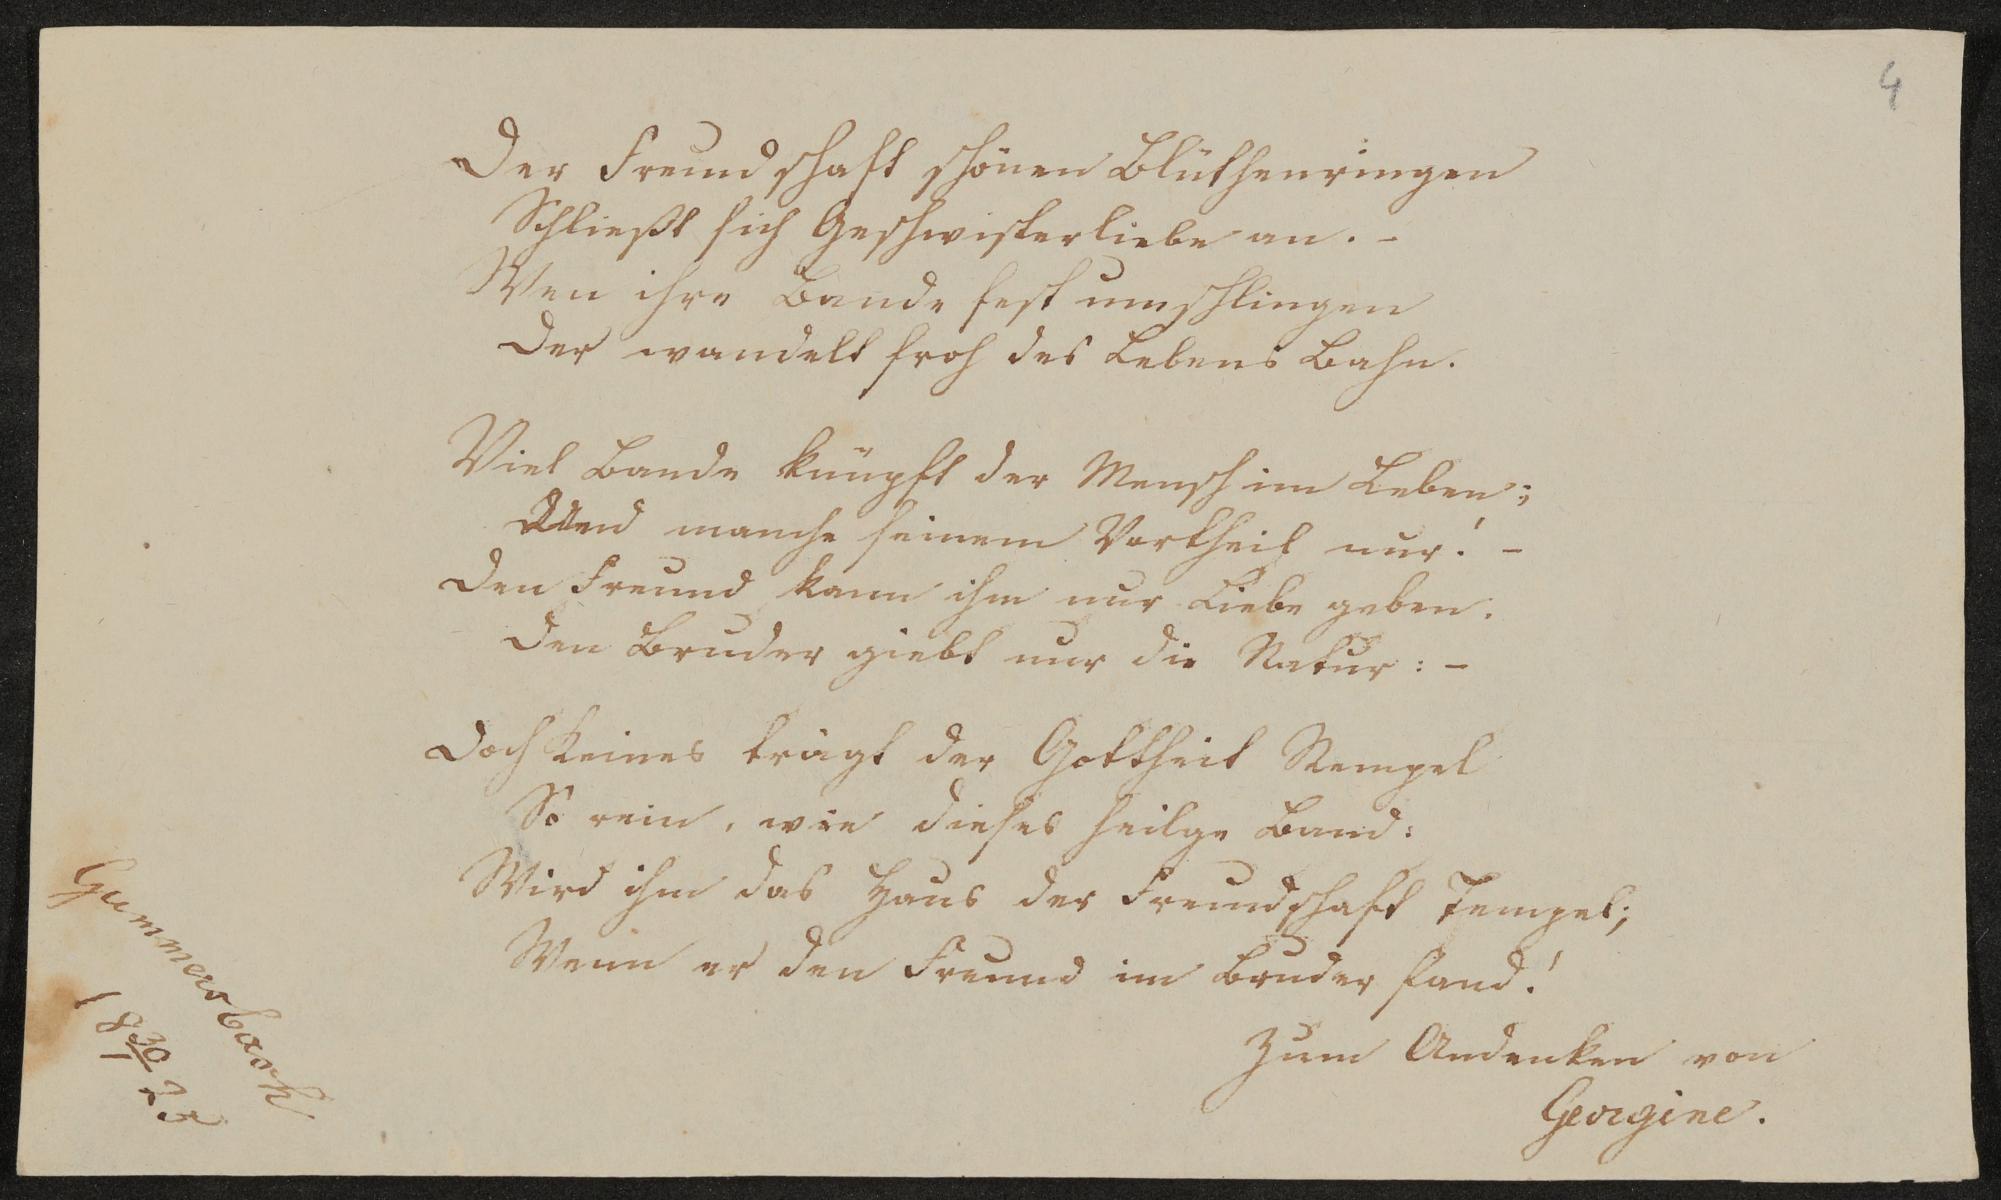 4
Der Freundschaft schönen Blüthenringen
Schließt sich Geschwisterliebe an. –
Wen ihre Bande fest umschlingen
Der wandelt froh des Lebens Bahn.
Viel Bande knüpft der Mensch im Leben;
Und manche seinem Vortheil nur! –
Den Freund kann ihm nur Liebe geben.
Den Bruder giebt nur die Natur: –
Doch keines trägt der Gottheit Stempel
So rein, wie dieses heilge Band:
Wird ihm das Haus der Freundschaft Tempel;
Wenn er den Freund im Bruder fand!
Zum Andenken von
Georgine.
Gummersbach
18 30/1 25